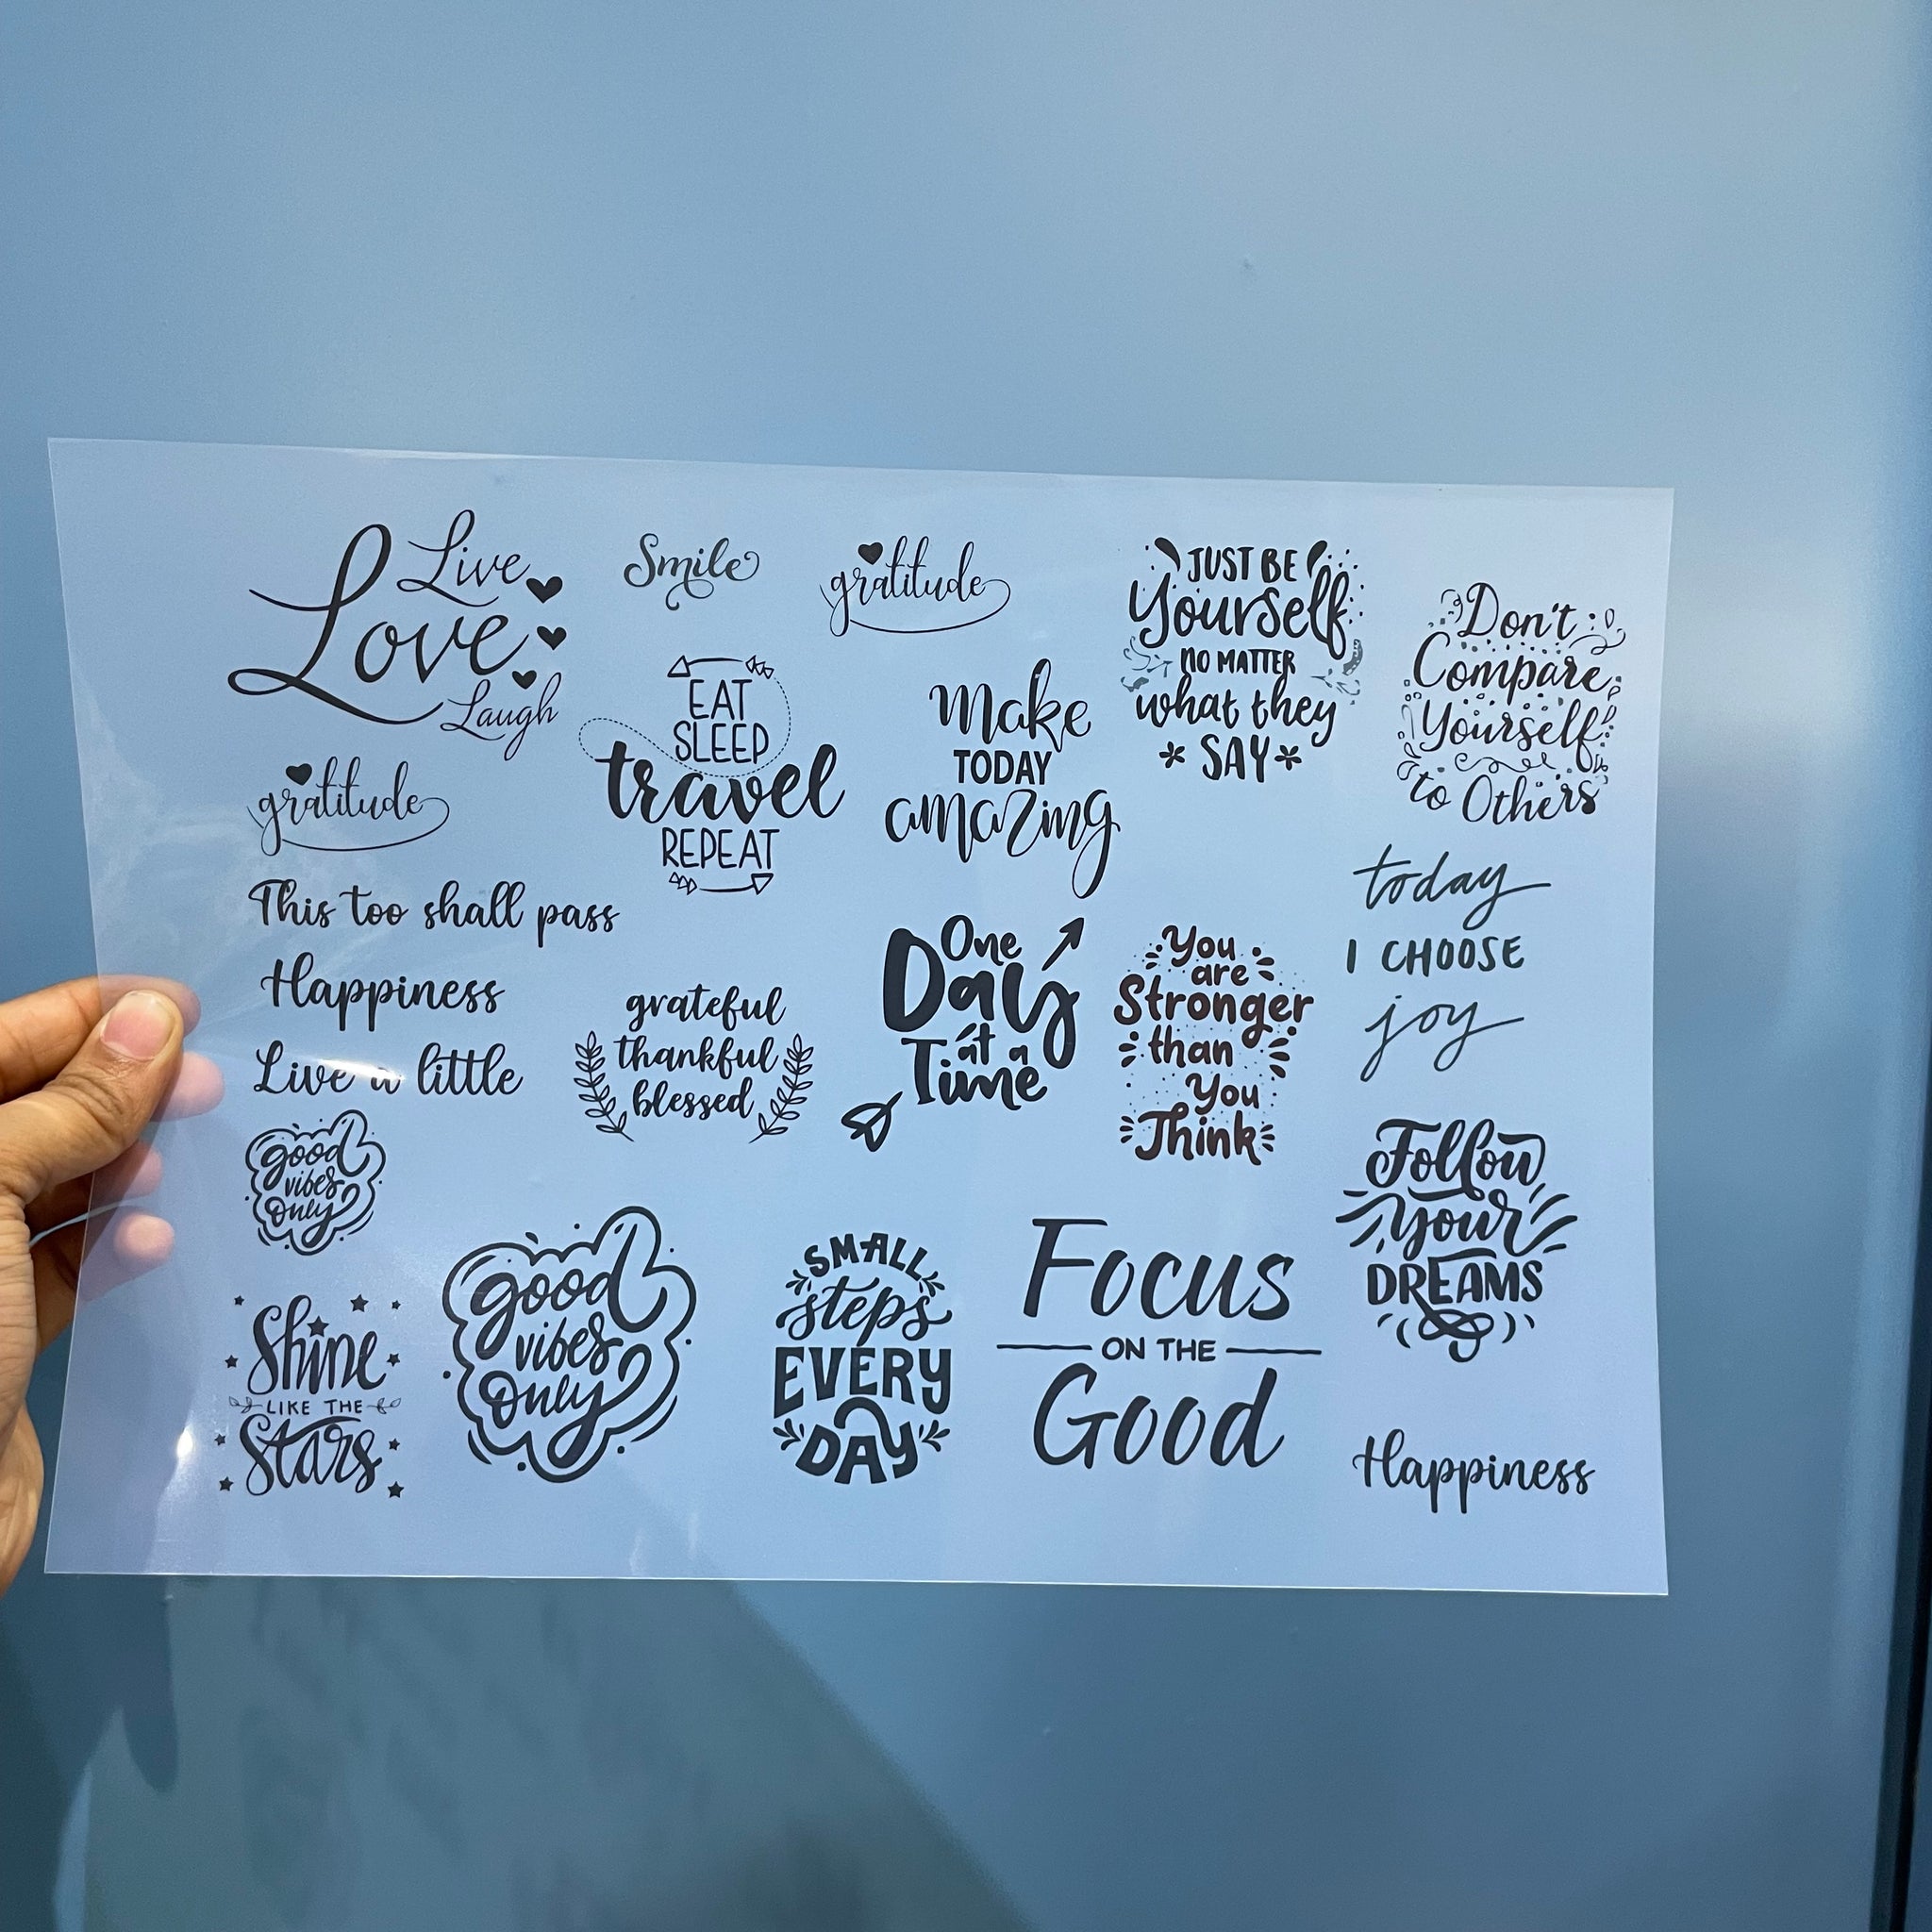 Live
Love
Laugh
Smile
gratitude
JUST BE
Yourself
NO MATTER
what they
SAY
Don't
Compare
Yourself
to Others
EAT
SLEEP
travel
REPEAT
Make
TODAY
amazing
gratitude
This too shall pass
Happiness
Live a little
grateful
thankful
blessed
One
Day
at a
Time
You
are
Stronger
than
You
Think
today
I CHOOSE
joy
good
vibes
only
Follow
Your
DREAMS
Shine
LIKE THE
Stars
good
vibes
only
SMALL
steps
EVERY
DAY
Focus
ON THE
Good
Happiness